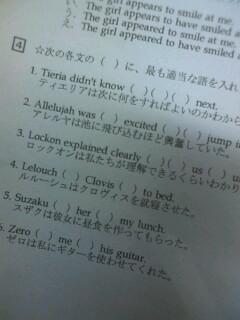 い. The girl appears to smile at me.
う. The girl appears to have smiled a
え. The girl appeared to smile at me.
The girl appeared to have smiled
4
☆次の各文の（ ）に、最も適当な語を入れ
1. Tieria didn't know ( )( )( ) next.
ティエリアは次に何をすればよいのかわから
2. Allelujah was ( ) excited ( )( ) jump i
アレルヤは池に飛び込むほど興奮していた。
3. Lockon explained clearly ( )( ) us ( ) u
ロックオンは私たちが理解できるくらいわかり
4. Lelouch ( ) Clovis ( ) to bed.
ルルーシュはクロヴィスを就寝させた。
5. Suzaku ( ) her ( ) my lunch.
スザクは彼女に昼食を作ってもらった。
6. Zero ( ) me ( ) his guitar.
ゼロは私にギターを使わせてくれた。